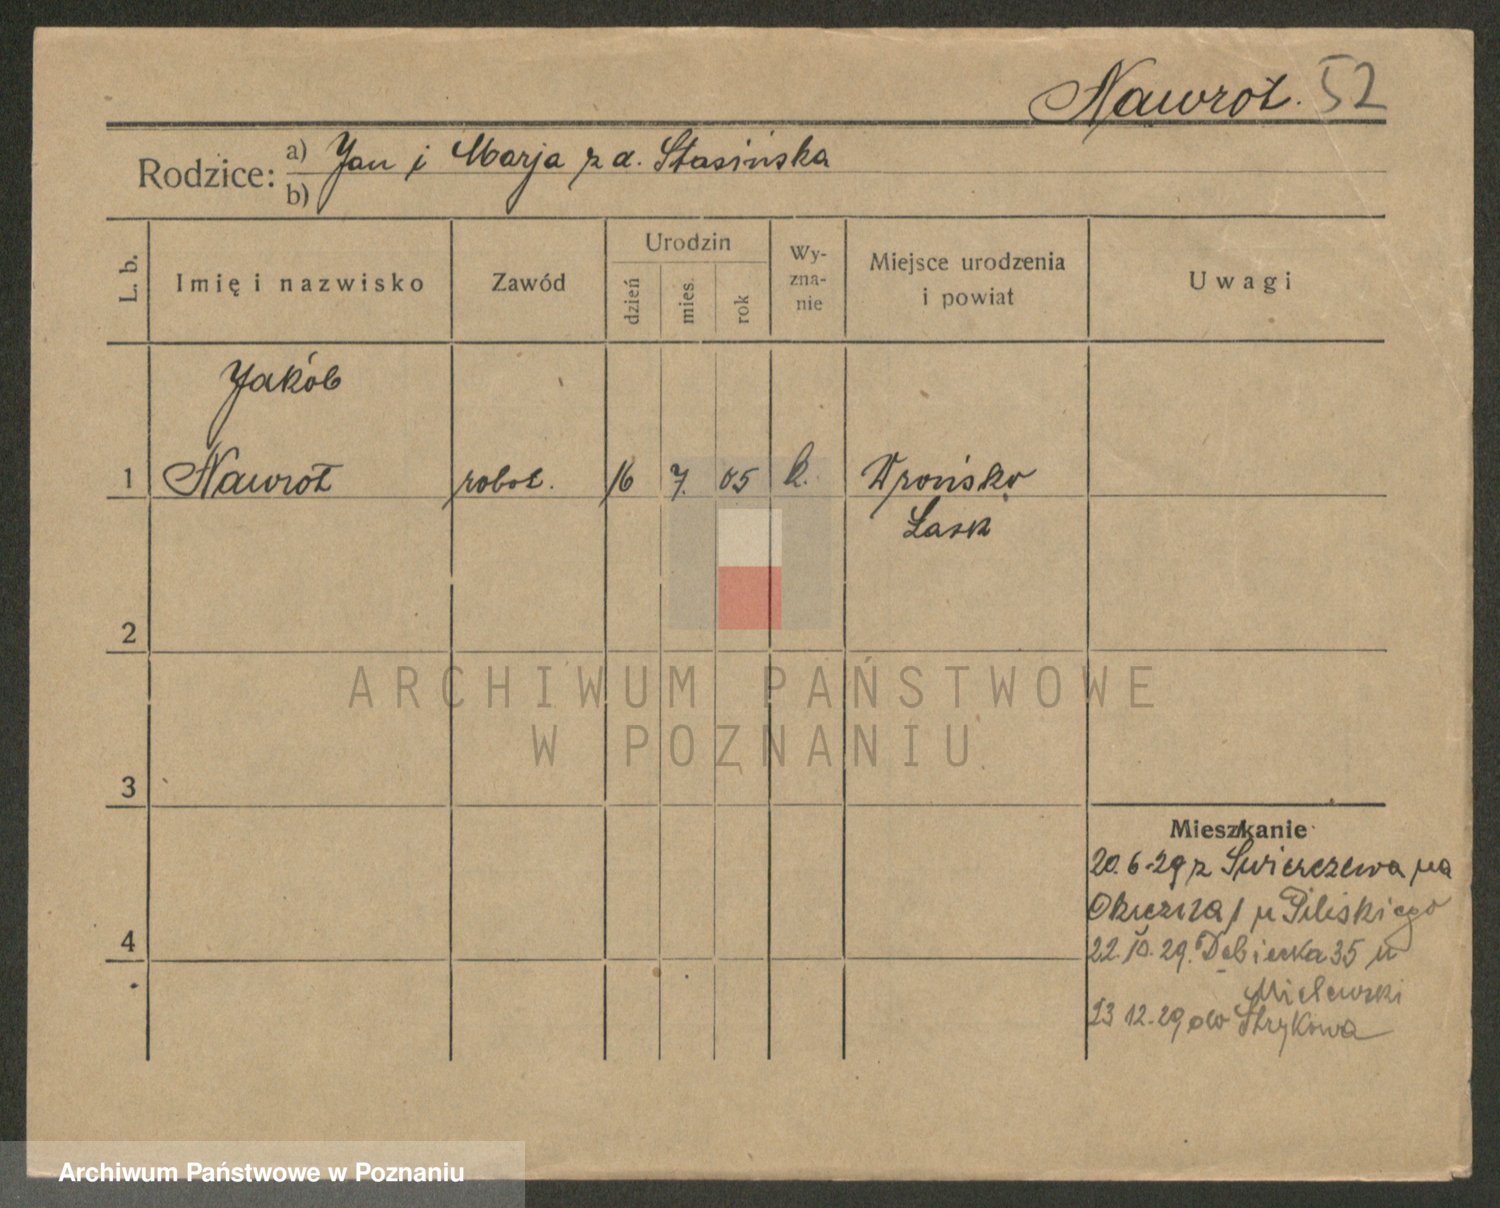 Nawrot. 52
Rodzice: a) Jan i Marja z d. Stasińska
b)
L. b. Imię i nazwisko Zawód Urodzin dzień mies. rok Wyznanie Miejsce urodzenia i powiat Uwagi
Jakób
1 Nawrot robot. 16 7. 05 k. Wrońsko
Łask
2
ARCHIWUM PAŃSTWOWE
W POZNANIU
3
Mieszkanie
20.6.29 z Świerczewa na
Okrężna 1 u Pilskiego
4
22.10.29. Dębiecka 35 u
Milewski
13 12.29 do Strykowa
Archiwum Państwowe w Poznaniu